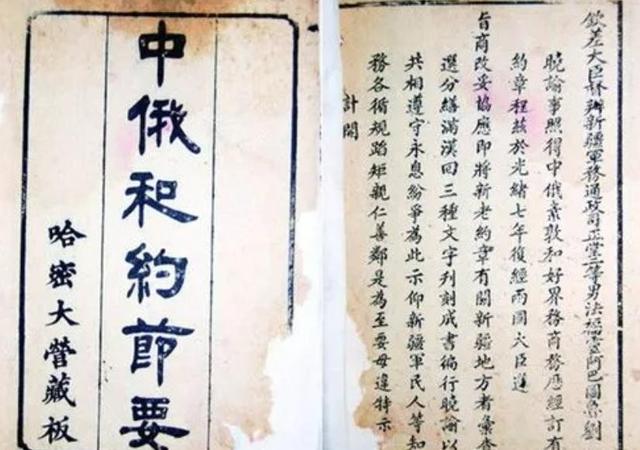 中俄和約節要
哈密大營藏板
欽差大臣督辦新疆軍務通政司正堂二等男法福靈阿巴圖魯劉
曉諭事照得中俄素敦和好界務商務歷經訂有
約章程茲於光緒七年復經兩國大臣遵
旨商改妥協應即將新老約章有關新疆地方者彙查
選分繕滿漢回三種文字刊刻成書徧行曉諭以
共相遵守永息紛爭為此示仰新疆軍民人等知
務各循規蹈矩親仁善鄰是為至要毋違特示
計開